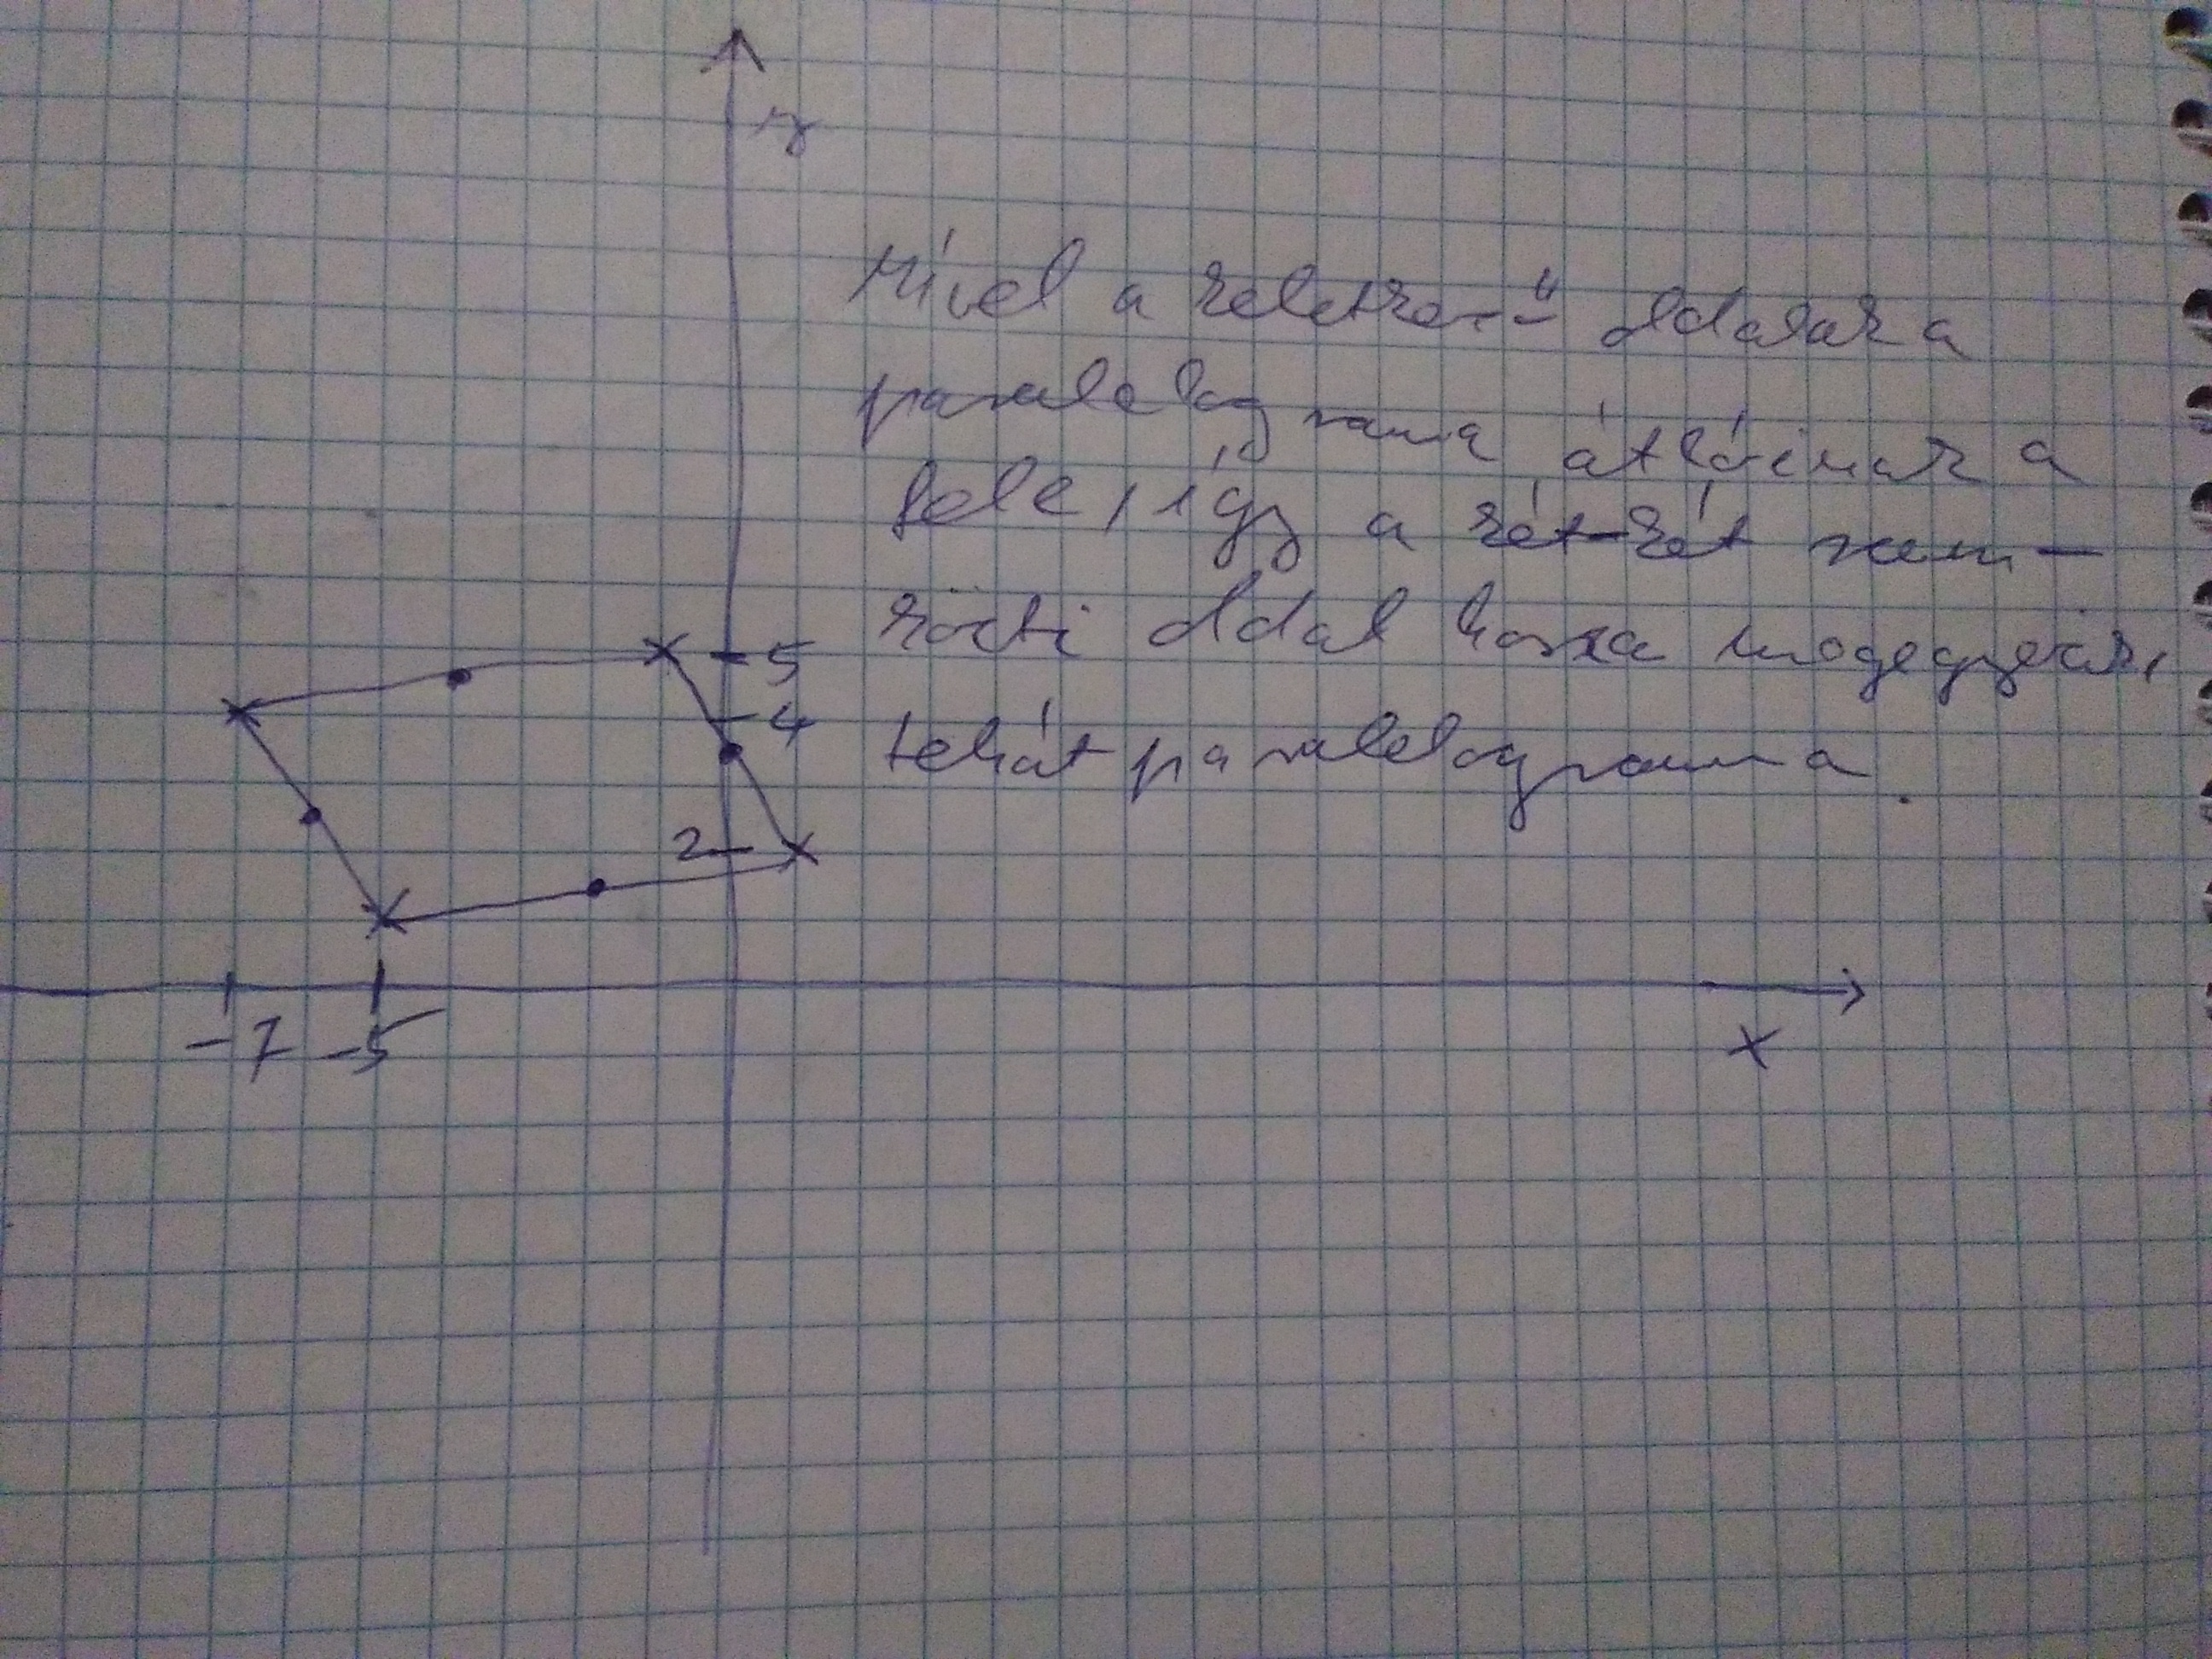 y
Mivel a keletkező oldalak a
paralelogramma átlóinak a
fele, így a két-két szem-
közti oldal hossza megegyezik,
tehát paralelogramma.
5
4
2
-7 -5
x